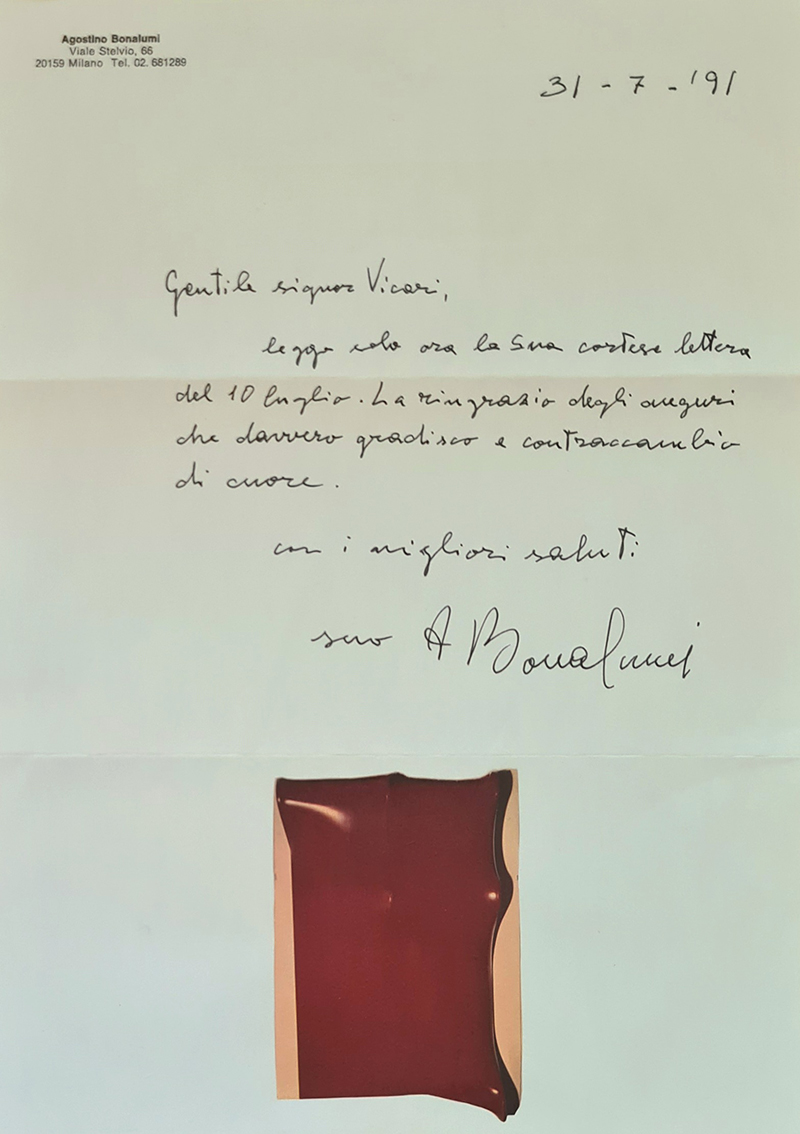 Agostino Bonalumi
Viale Stelvio, 66
20159 Milano Tel. 02. 681289
31 - 7 - '91
Gentile signor Vicari,
leggo solo ora la Sua cortese lettera
del 10 luglio. La ringrazio degli auguri
che davvero gradisco e contraccambio
di cuore.
con i migliori saluti
suo A Bonalumi